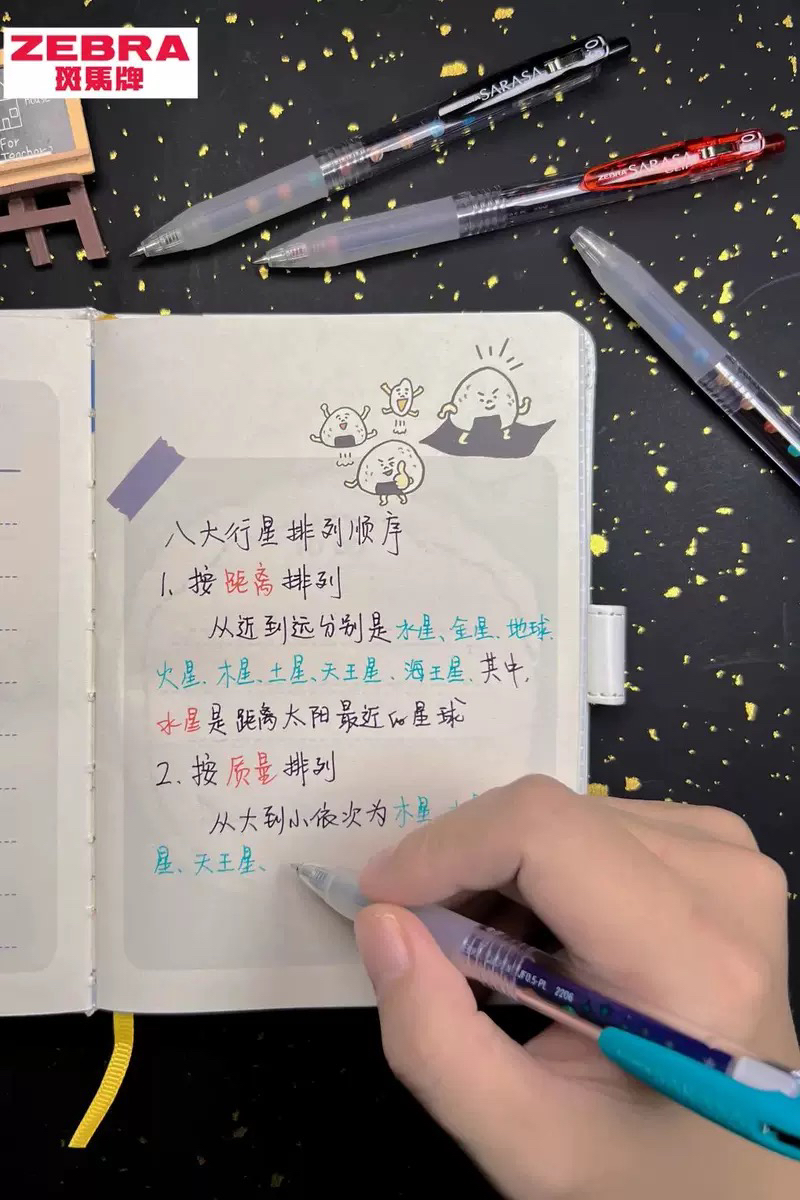 ZEBRA
斑馬牌
house
For
Teacher
SARASA
ZEBRA SARASA
八大行星排列顺序
1、按距离排列
从近到远分别是水星、金星、地球、
火星、木星、土星、天王星、海王星、其中,
水星是距离太阳最近的星球
2、按质量排列
从大到小依次为木星、
星、天王星、
JF0.5-PL 2206